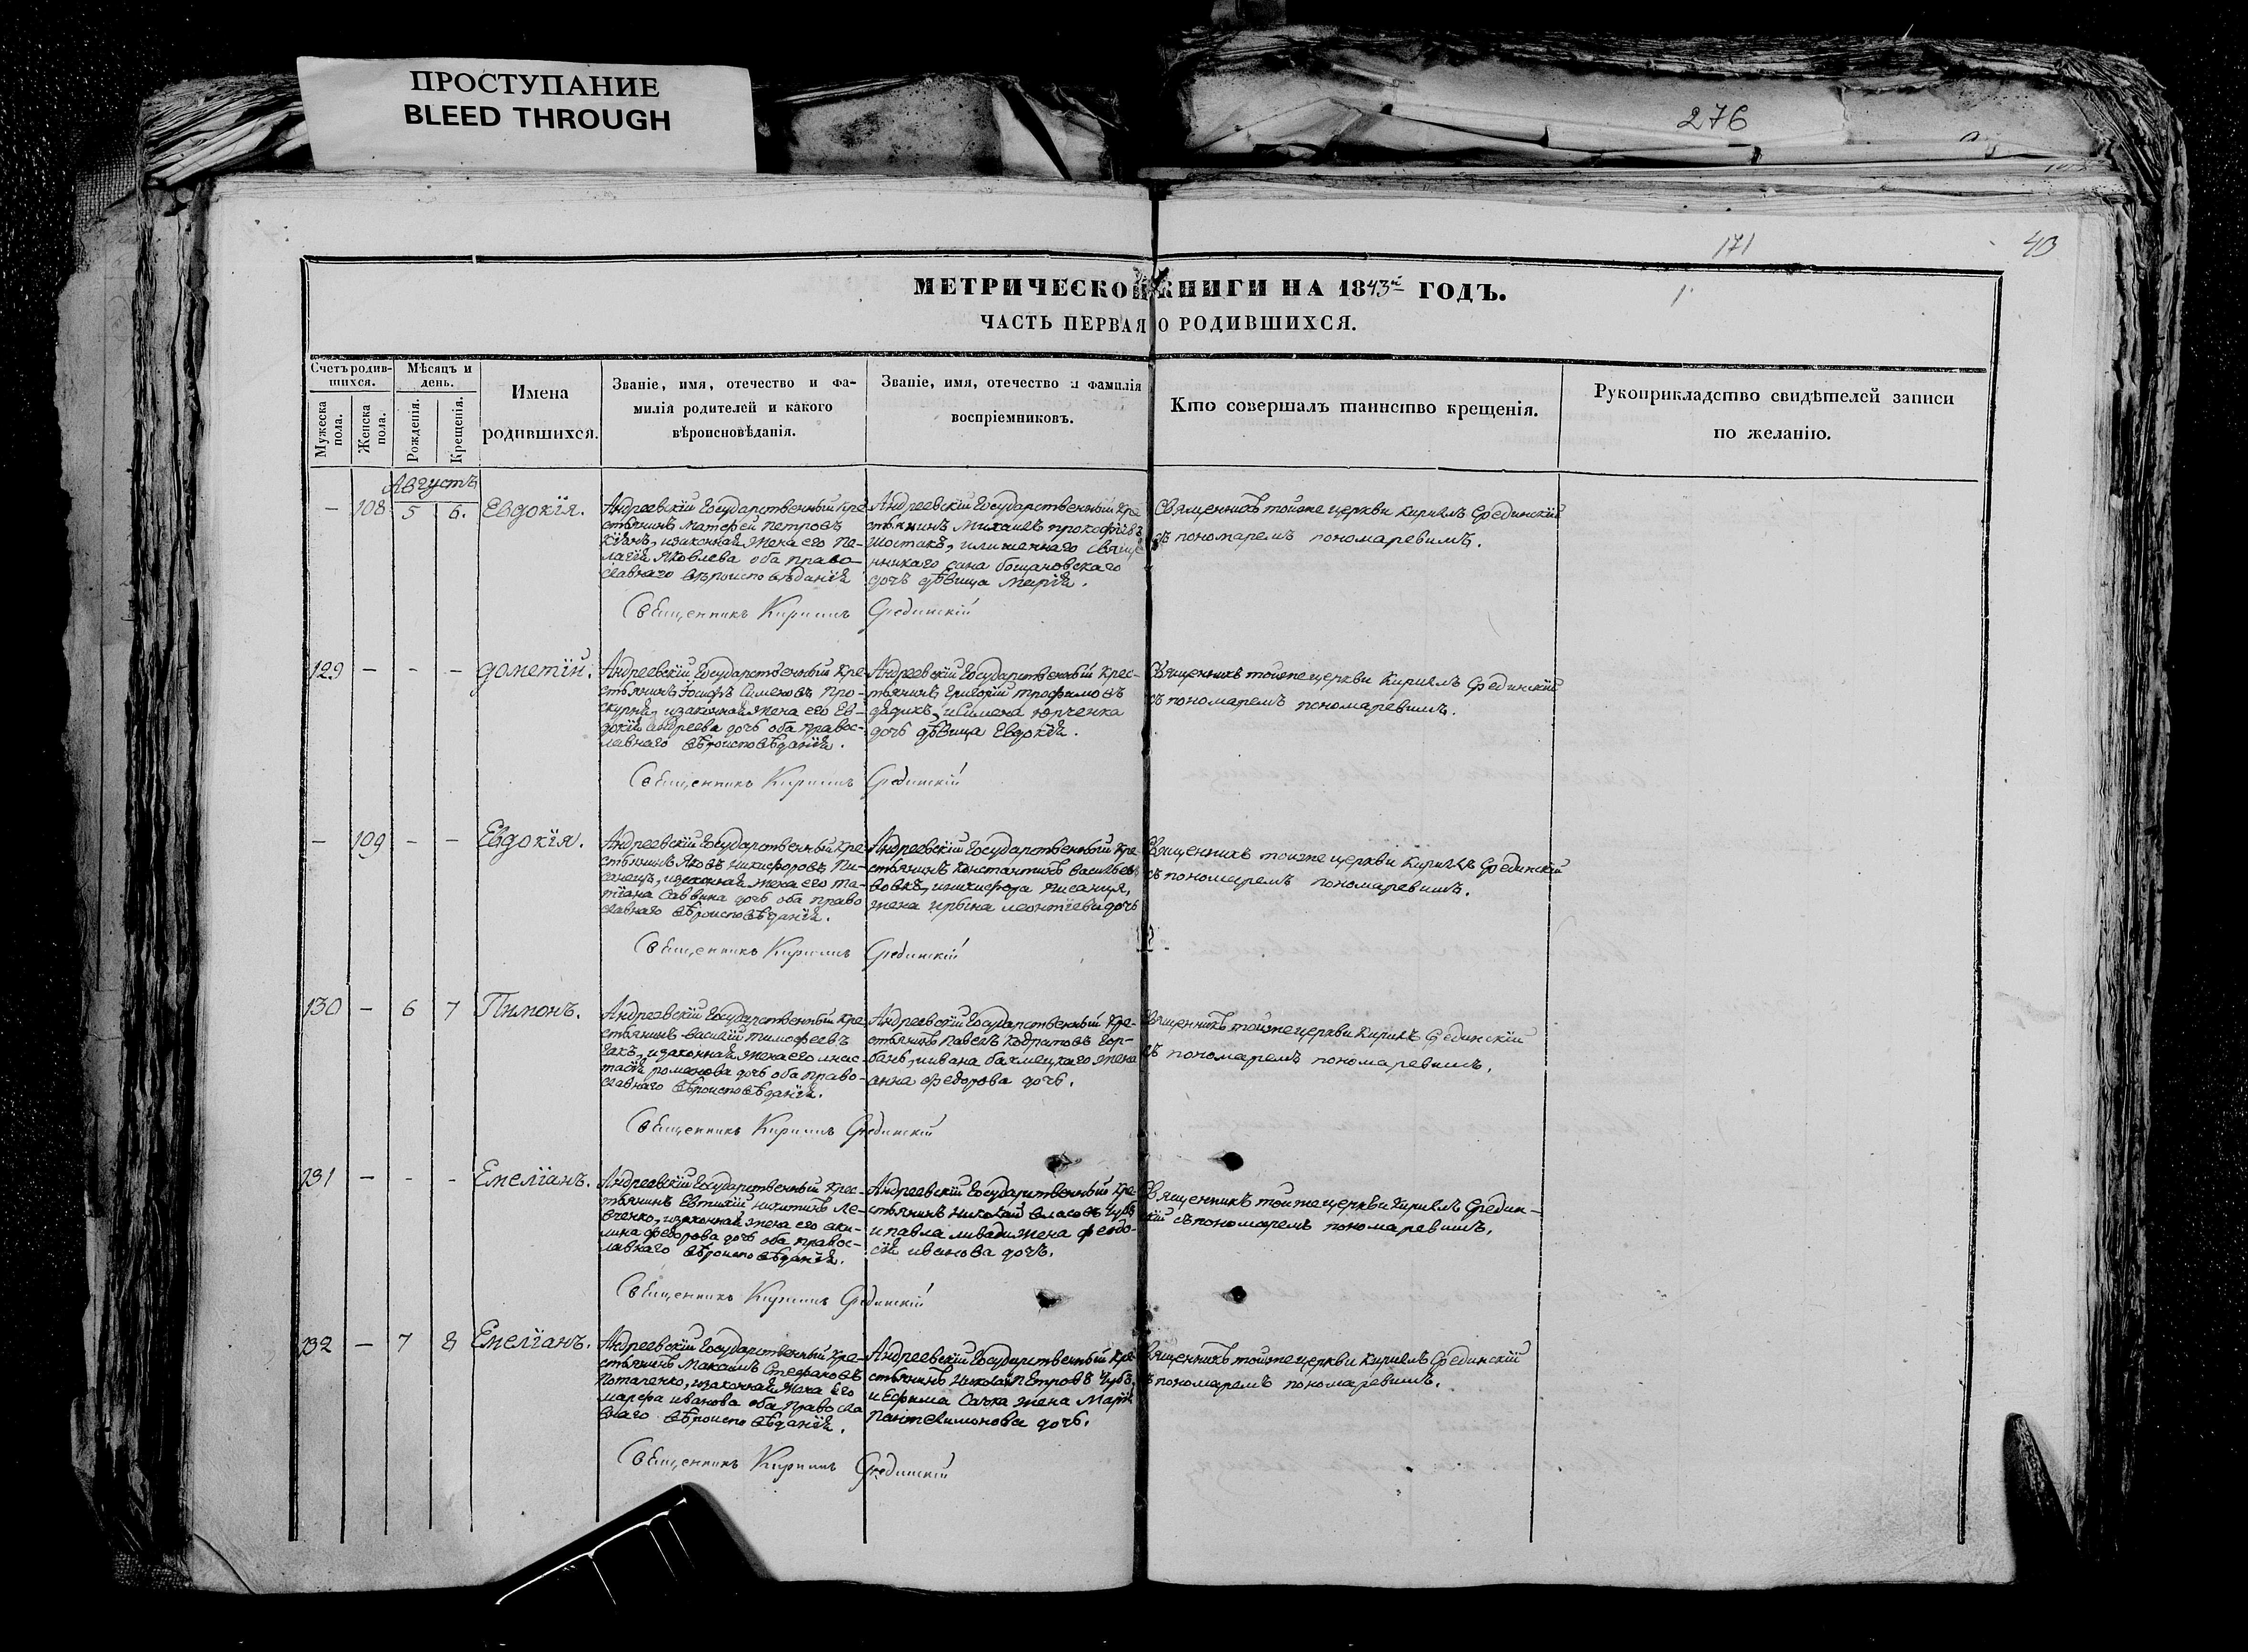 ПРОСТУПАНИЕ
BLEED THROUGH
276
171
43
МЕТРИЧЕСКОЙ КНИГИ НА 1843й ГОДЪ.
ЧАСТЬ ПЕРВАЯ О РОДИВШИХСЯ.
Счетъ родив-
шихся.
Мужеска
пола.
Женска
пола.
Мѣсяцъ и
день.
Рожденія.
Крещенія.
Имена
родившихся.
Званіе, имя, отечество и фа-
милія родителей и какого
вѣроисповѣданія.
Званіе, имя, отечество и фамилія
воспріемниковъ.
Кто совершалъ таинство крещенія.
Рукоприкладство свидѣтелей записи
по желанію.
Августъ
— 108 5 6. Евдокія.
Андреевскій Государственный кре
стьянинъ Матфей Петровъ
изаконная жена его Пе-
лагія Яковлева оба право-
славнаго вѣроисповѣданія
Андреевскій Государственный кре
стьянинъ Михаилъ Прокофіевъ
Шостакъ, илишеннаго свяще
нникаго сана бошановскаго
дочь дѣвица Марія.
Священникъ тойже церкви Кириллъ Срединскій
съ пономаремъ пономаревимъ.
Священникъ Кириллъ Срединскій
129 — - — Дометій.
Андреевскій Государственный кре
стьянинъ Іосифъ Сименовъ Про-
скурня, изаконная жена его Ев-
докія Андреева дочь оба правос-
лавнаго вѣроисповѣданія.
Андреевскій Государственный крес-
тьянинъ Григорій трофимовъ
дядикъ, исимена юрченка
дочь дѣвица Евдокія.
Священникъ тойже церкви Кириллъ Срединскій
съ пономаремъ пономаревимъ.
Священникъ Кириллъ Срединскій
— 109 - — Евдокія.
Андреевскій Государственный кре
стьянинъ Яковъ Никифоровъ Пи-
санецъ, изаконная жена его та-
тіана Саввина дочь оба право
славнаго вѣроисповѣданія.
Андреевскій Государственный кре-
стьянинъ Константинъ васильевъ
вовкъ, иникифора писанця,
жена ирына леонтіева дочь
Священникъ тойже церкви Кириллъ Срединскій
съ пономаремъ пономаревимъ.
Священникъ Кириллъ Срединскій
130 — 6 7 Пимонъ.
Андреевскій Государственный кре
стьянинъ Василій Тимофеевъ
изаконная жена его анас-
тасія романова дочь оба право-
славнаго вѣроисповѣданія.
Андреевскій Государственный кре-
стьянинъ Павелъ Кодратовъ Гор-
бань, ивана бахмецкаго жена
анна федорова дочь.
Священникъ тойже церкви Кириллъ Срединскій
съ пономаремъ пономаревимъ.
Священникъ Кириллъ Срединскій
131 — - - Емеліанъ.
Андреевскій Государственный крес-
тьянинъ Евтихій никитинъ Ле-
вченко, изаконная жена его аки-
лина федорова дочь оба правос-
лавнаго вѣроисповѣданія.
Андреевскій Государственный кре-
стьянинъ Николай власовъ Чубъ
и павла жена феодо-
сія иванова дочь.
Священникъ тойже церкви Кириллъ Средин-
скій съ пономаремъ пономаревимъ.
Священникъ Кириллъ Срединскій
132 — 7 8 Емеліанъ.
Андреевскій Государственный кре-
стьянинъ Максимъ Стефановъ
Потапенко, изаконная жена его
марфа иванова оба правосла
внаго вѣроисповѣданія.
Андреевскій Государственный кре
стьянинъ Николай Петровъ Чубъ,
и Ефима Сачка жена Марія
Пантелимонова дочь.
Священникъ тойже церкви Кириллъ Срединскій
съ пономаремъ пономаревимъ.
Священникъ Кириллъ Срединскій